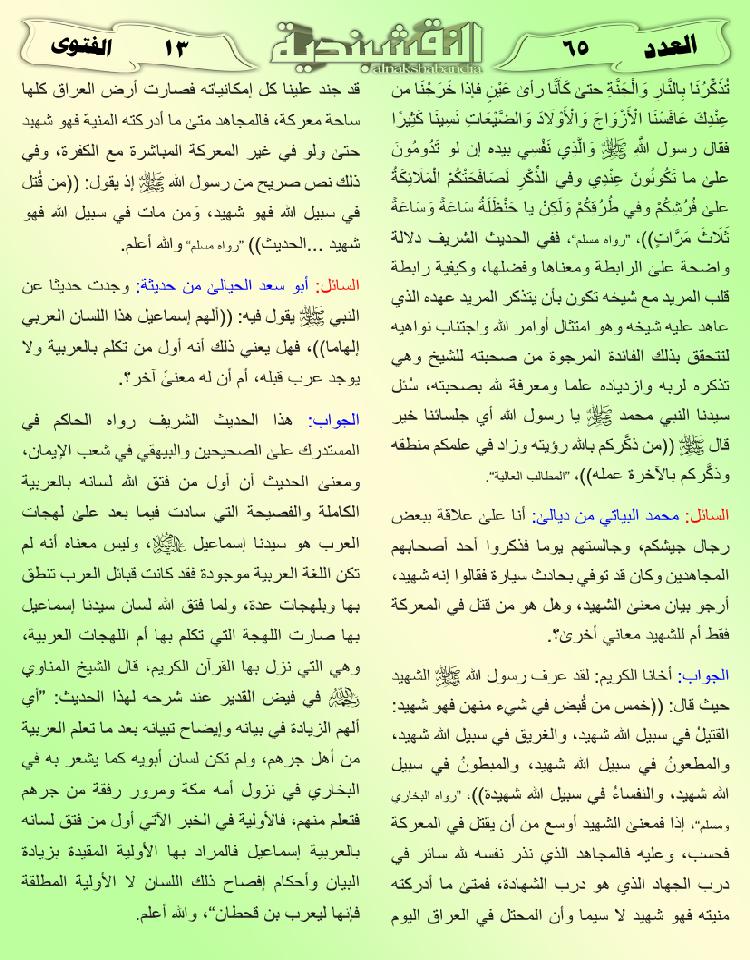 العدد
٦٥
النقشبندية
alnakshabandia
١٣
الفتوى
تُذَكِّرُنَا بِالنَّارِ وَالْجَنَّةِ حتىٰ كَأَنَّا رأىُ عَيْنٍ فإذا خَرَجْنَا من
عِنْدِكَ عَافَسْنَا الْأَزْوَاجَ وَالْأَوْلَادَ وَالضَّيْعَاتِ نَسِينَا كَثِيْرًا
فقال رسول اللَّهِ ﷺ وَالَّذِي نَفْسِي بيده إن لو تَدُومُونَ
علىٰ ما تَكُونُونَ عِنْدِي وفي الذِّكْرِ لَصَافَحَتْكُمْ الْمَلَائِكَةُ
علىٰ فُرُشِكُمْ وفي طُرُقِكُمْ وَلَكِنْ يا حَنْظَلَةُ سَاعَةً وَسَاعَةً
ثَلَاثَ مَرَّاتٍ))، "رواه مسلم"، ففي الحديث الشريف دلالة
واضحة علىٰ الرابطة ومعناها وفضلها، وكيفية رابطة
قلب المريد مع شيخه تكون بأن يتذكر المريد عهده الذي
عاهد عليه شيخه وهو امتثال أوامر الله واجتناب نواهيه
لتتحقق بذلك الفائدة المرجوة من صحبته للشيخ وهي
تذكره لربه وازدياده علما ومعرفة لله بصحبته، سُئل
سيدنا النبي محمد ﷺ يا رسول الله أي جلسائنا خير
قال ﷺ ((من ذكَّركم بالله رؤيته وزاد في علمكم منطقه
وذكَّركم بالآخرة عمله))، "المطالب العالية".
السائل: محمد البياتي من ديالىٰ: أنا علىٰ علاقة ببعض
رجال جيشكم، وجالستهم يوما فذكروا أحد أصحابهم
المجاهدين وكان قد توفي بحادث سيارة فقالوا إنه شهيد،
أرجو بيان معنىٰ الشهيد، وهل هو من قتل في المعركة
فقط أم للشهيد معاني أخرىٰ؟.
الجواب: أخانا الكريم: لقد عرف رسول الله ﷺ الشهيد
حيث قال: ((خمس من قُبض في شيء منهن فهو شهيد:
القتيلُ في سبيل الله شهيد، والغريق في سبيل الله شهيد،
والمطعونُ في سبيل الله شهيد، والمبطونُ في سبيل
الله شهيد، والنفساءُ في سبيل الله شهيدة))، "رواه البخاري
ومسلم"، إذا فمعنىٰ الشهيد أوسع من أن يقتل في المعركة
فحسب، وعليه فالمجاهد الذي نذر نفسه لله سائر في
درب الجهاد الذي هو درب الشهادة، فمتىٰ ما أدركته
منيته فهو شهيد لا سيما وأن المحتل في العراق اليوم
قد جند علينا كل إمكانياته فصارت أرض العراق كلها
ساحة معركة، فالمجاهد متىٰ ما أدركته المنية فهو شهيد
حتىٰ ولو في غير المعركة المباشرة مع الكفرة، وفي
ذلك نص صريح من رسول الله ﷺ إذ يقول: ((من قُتل
في سبيل الله فهو شهيد، وَمن مات في سبيل الله فهو
شهيد ...الحديث)) "رواه مسلم" والله أعلم.
السائل: أبو سعد الحيالي من حديثة: وجدت حديثا عن
النبي ﷺ يقول فيه: ((ألهم إسماعيل هذا اللسان العربي
إلهاما))، فهل يعني ذلك أنه أول من تكلم بالعربية ولا
يوجد عرب قبله، أم أن له معنىً آخر؟.
الجواب: هذا الحديث الشريف رواه الحاكم في
المستدرك علىٰ الصحيحين والبيهقي في شعب الإيمان،
ومعنى الحديث أن أول من فتق الله لسانه بالعربية
الكاملة والفصيحة التي سادت فيما بعد علىٰ لهجات
العرب هو سيدنا إسماعيل عليه السلام، وليس معناه أنه لم
تكن اللغة العربية موجودة فقد كانت قبائل العرب تنطق
بها وبلهجات عدة، ولما فتق الله لسان سيدنا إسماعيل
بها صارت اللهجة التي تكلم بها أم اللهجات العربية،
وهي التي نزل بها القرآن الكريم، قال الشيخ المناوي
رحمه الله في فيض القدير عند شرحه لهذا الحديث: "أي
ألهم الزيادة في بيانه وإيضاح تبيانه بعد ما تعلم العربية
من أهل جرهم، ولم تكن لسان أبويه كما يشعر به في
البخاري في نزول أمه مكة ومرور رفقة من جرهم
فتعلم منهم، فالأولية في الخبر الآتي أول من فتق لسانه
بالعربية إسماعيل فالمراد بها الأولية المقيدة بزيادة
البيان وأحكام إفصاح ذلك اللسان لا الأولية المطلقة
فإنها ليعرب بن قحطان"، والله أعلم.